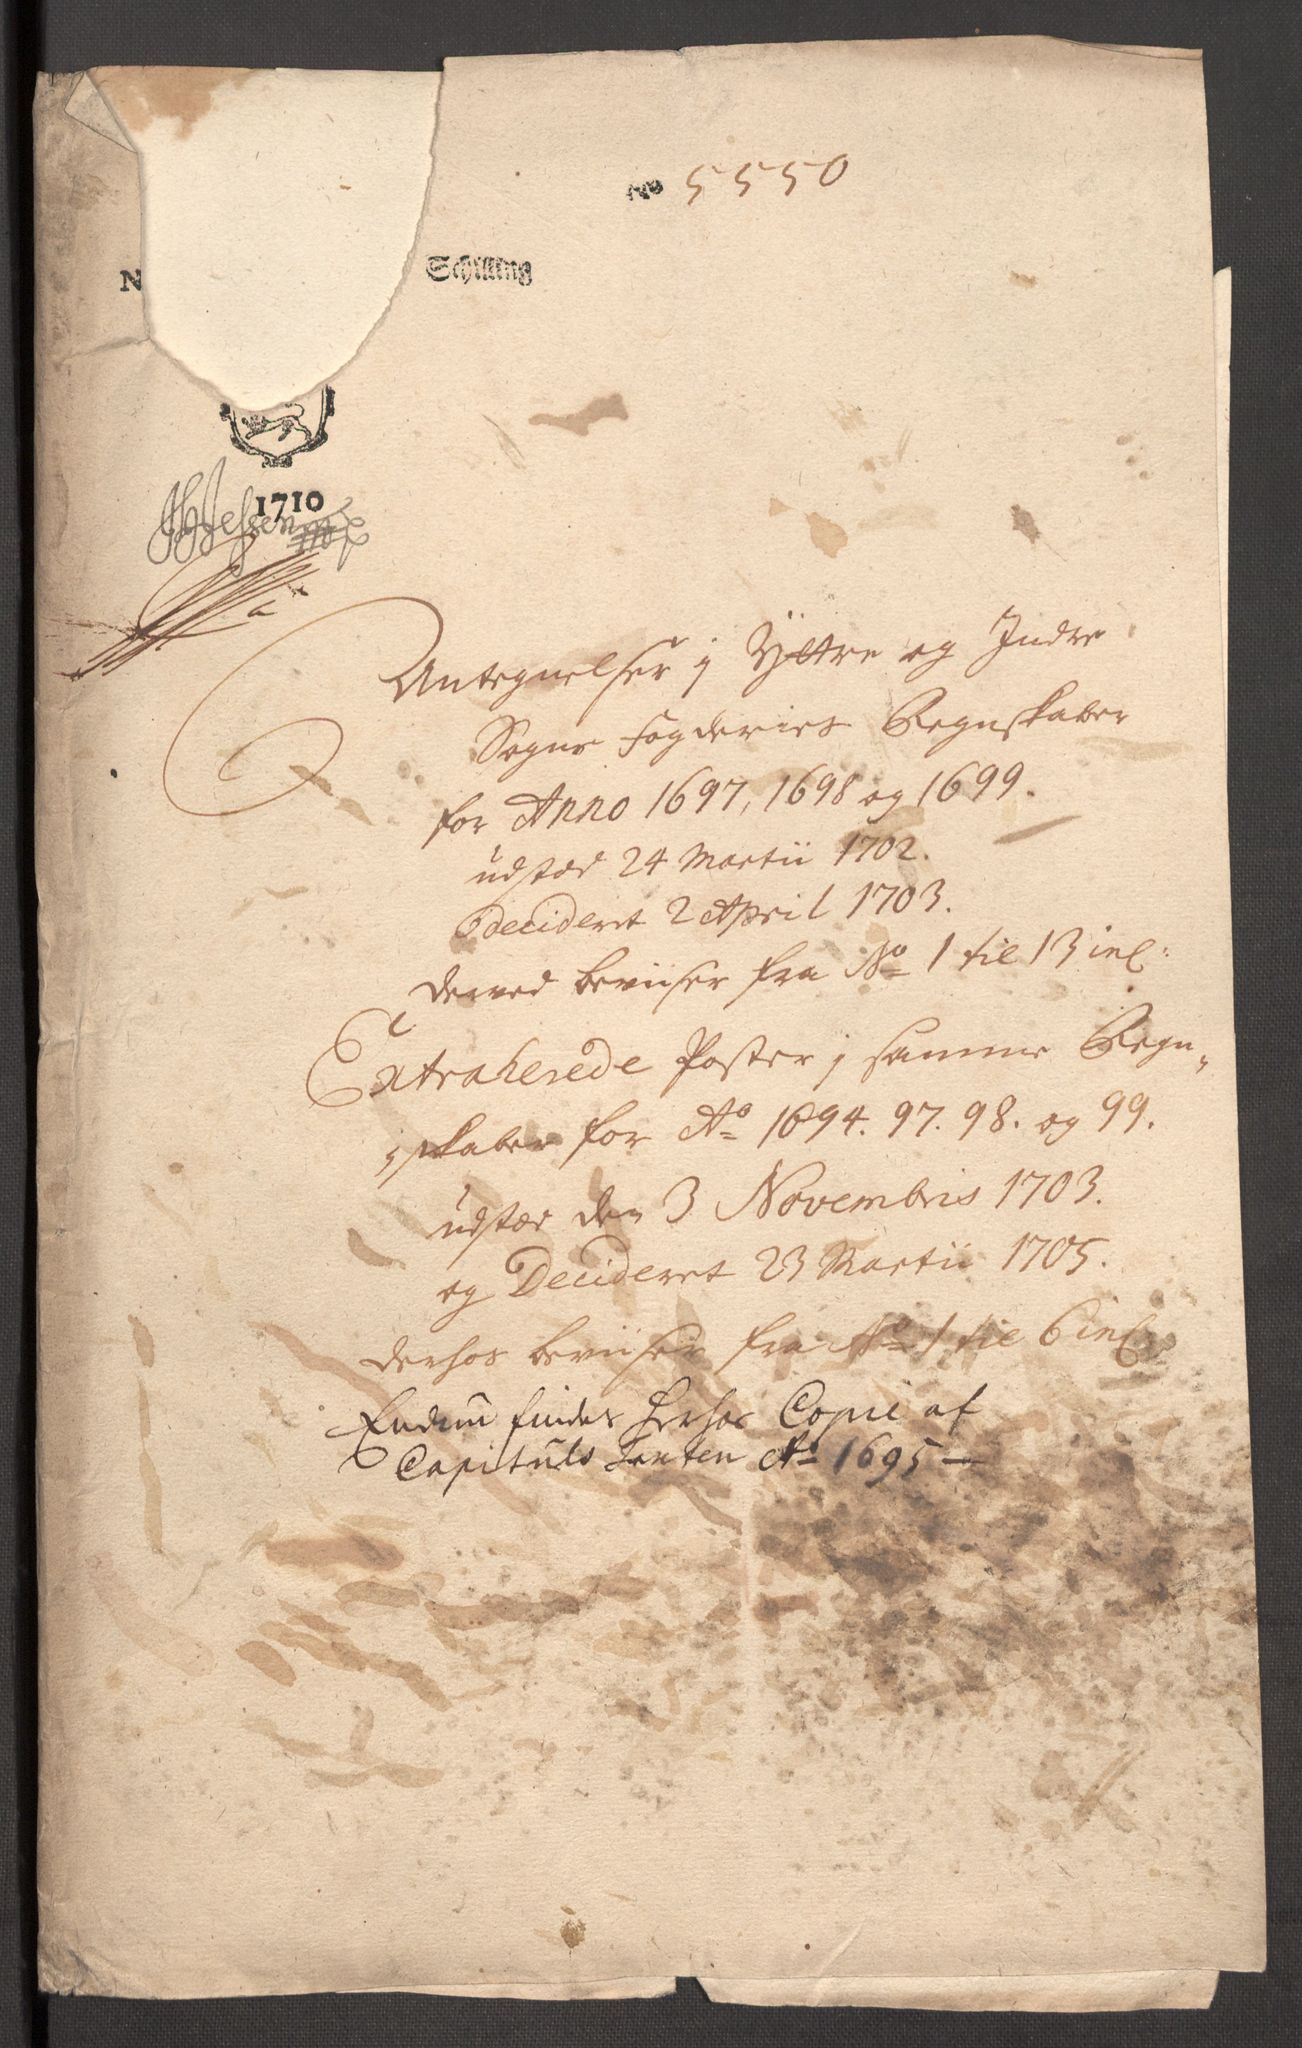 No 5550
N
Schilling
1710
Antegnelser j Yttre og Indre
Sogns Fogderies Regnskaber
for Anno 1697, 1698 og 1699.
udstæd 24 Martii 1702.
Decideret 2 April 1703.
derved beviiser fra No 1 til 13 incl:
Extraherede Poster j samme Regn-
skaber for Ao 1694. 97. 98. og 99.
udstæd den 3 Novembris 1703.
og Decideret 23 Martii 1705.
derhos beviiser fra No 1 til 6 incl
Endnu findes herhos Copie af
Capituls taxten Ao 1695 —